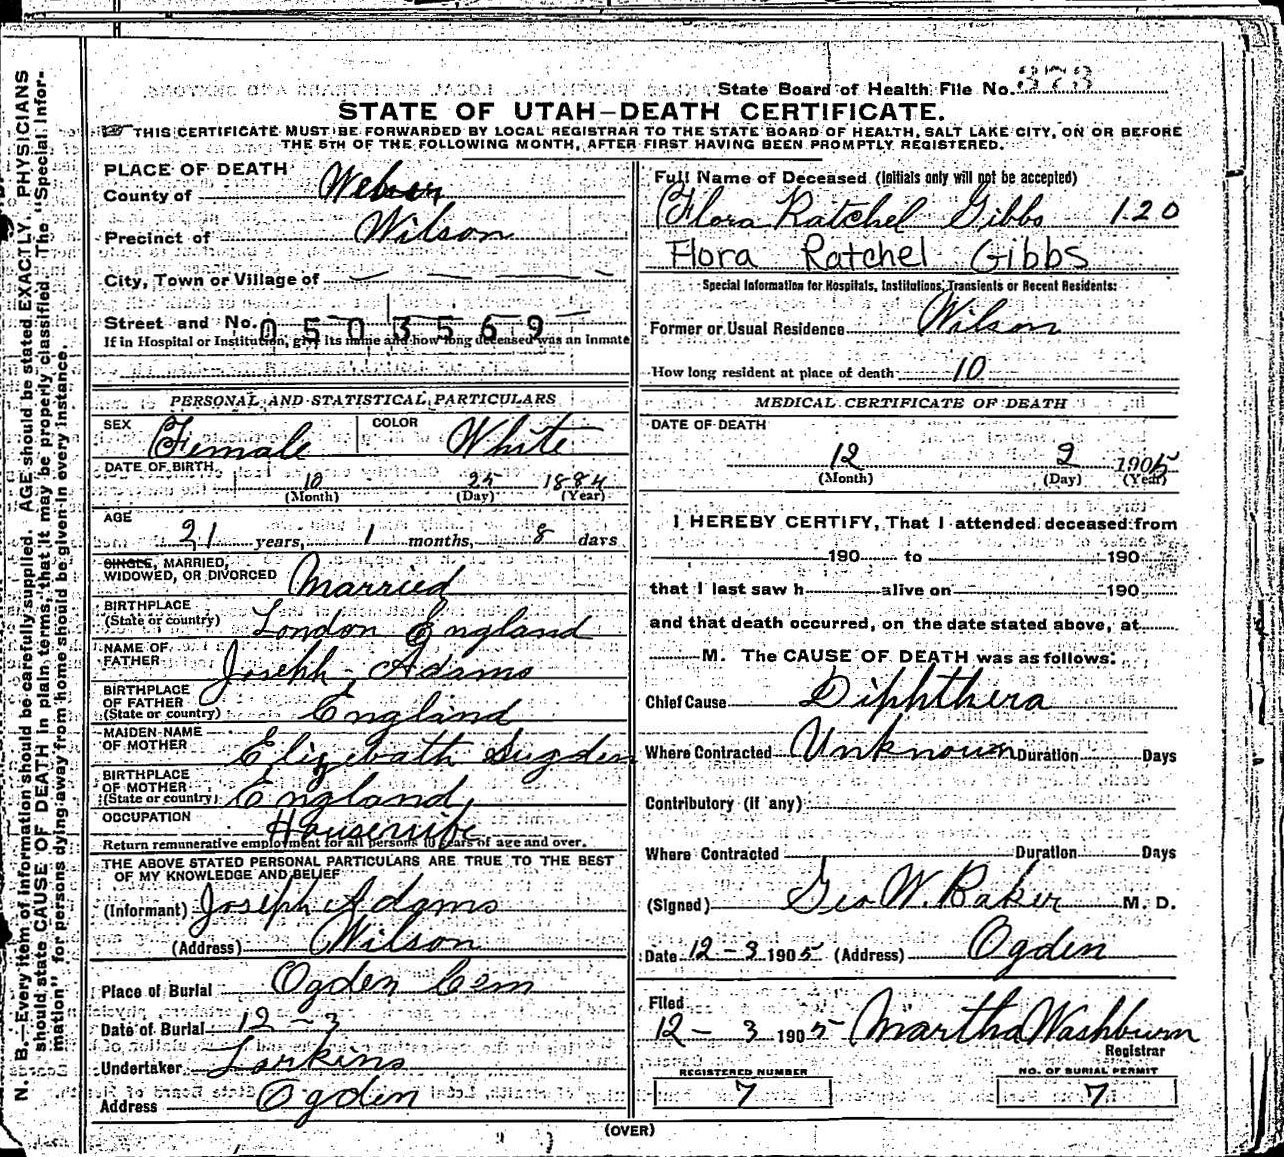 State Board of Health File No. 373
STATE OF UTAH—DEATH CERTIFICATE.
THIS CERTIFICATE MUST BE FORWARDED BY LOCAL REGISTRAR TO THE STATE BOARD OF HEALTH, SALT LAKE CITY, ON OR BEFORE
THE 5TH OF THE FOLLOWING MONTH, AFTER FIRST HAVING BEEN PROMPTLY REGISTERED.
N. B.—Every item of information should be carefully supplied. AGE should be stated EXACTLY. PHYSICIANS
should state CAUSE OF DEATH in plain terms, that it may be properly classified. The "Special Infor-
mation" for persons dying away from home should be given in every instance.
PLACE OF DEATH
County of Weber
Precinct of Wilson
City, Town or Village of
Street and No. 0503569
If in Hospital or Institution, give its name and how long deceased was an inmate
PERSONAL AND STATISTICAL PARTICULARS
SEX Female COLOR White
DATE OF BIRTH
10 25 1884
(Month) (Day) (Year)
AGE
21 years, 1 months, 8 days
SINGLE, MARRIED,
WIDOWED, OR DIVORCED Married
BIRTHPLACE
(State or country) London England
NAME OF
FATHER Joseph Adams
BIRTHPLACE
OF FATHER
(State or country) England
MAIDEN NAME
OF MOTHER Elizebath Sugden
BIRTHPLACE
OF MOTHER
(State or country) England
OCCUPATION Housewife
Return remunerative employment for all persons 10 years of age and over.
THE ABOVE STATED PERSONAL PARTICULARS ARE TRUE TO THE BEST
OF MY KNOWLEDGE AND BELIEF
(Informant) Joseph Adams
(Address) Wilson
Place of Burial Ogden Cem
Date of Burial 12-3
Undertaker Larkins
Address Ogden
Full Name of Deceased (Initials only will not be accepted)
Flora Ratchel Gibbs 120
Flora Ratchel Gibbs
Special Information for Hospitals, Institutions, Transients or Recent Residents:
Former or Usual Residence Wilson
How long resident at place of death 10
MEDICAL CERTIFICATE OF DEATH
DATE OF DEATH
12 2 1905
(Month) (Day) (Year)
I HEREBY CERTIFY, That I attended deceased from
190 to 190
that I last saw h alive on 190
and that death occurred, on the date stated above, at
M. The CAUSE OF DEATH was as follows:
Chief Cause Diphthera
Where Contracted Unknown Duration Days
Contributory (if any)
Where Contracted Duration Days
(Signed) Geo W. Baker M. D.
Date 12-3 1905 (Address) Ogden
Filed
12-3 1905 Martha Washburn
Registrar
REGISTERED NUMBER
7
NO. OF BURIAL PERMIT
7
(OVER)